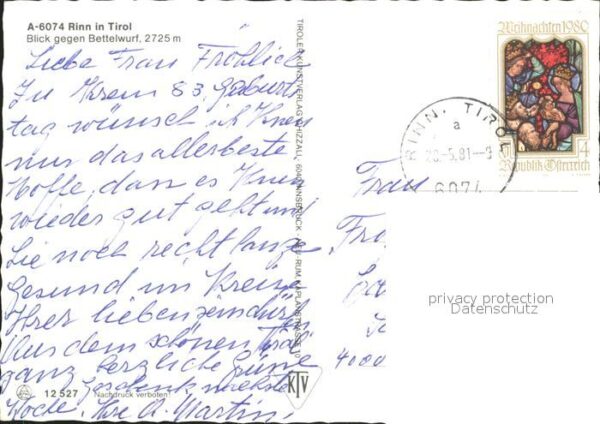 A-6074 Rinn in Tirol
Blick gegen Bettelwurf, 2725 m
Liebe Frau Fröhlich
Zu Ihrem 83. Geburts
tag wünsch ich Ihnen
nur das allerbeste
Hoffe, dass es Ihnen
wieder gut geht und
Sie noch recht lange
Gesund im Kreise
Ihrer lieben sein dürfen
Aus dem schönen Tirol
ganz herzliche Grüsse
Geschenk nächste
Woche. Ihre A. Martini
12 527 Nachdruck verboten!
TIROLER KUNSTVERLAG CHIZZALI, 6040 INNSBRUCK - NEU-RUM, KAPLANSTRASSE 10
KTV
Weihnachten 1980
S 4
Republik Österreich
RINN, TIROL
a
-5.81-9
6074
Frau
4000
privacy protection
Datenschutz